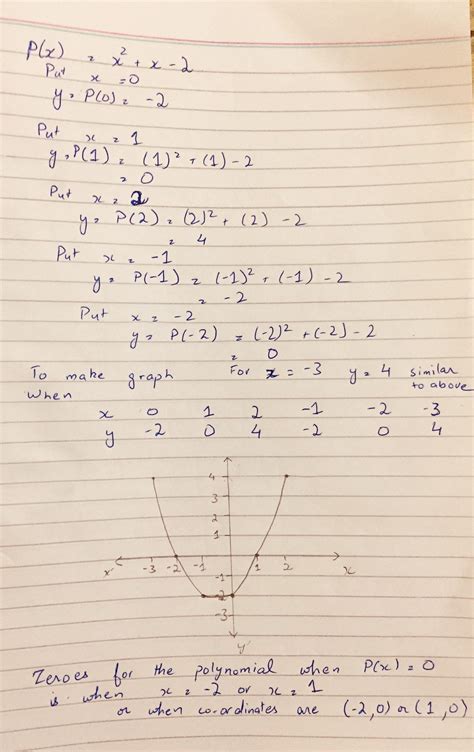 P(x) = x² + x - 2
Put x = 0
y = P(0) = -2
Put x = 1
y = P(1) = (1)² + (1) - 2
= 0
Put x = 2
y = P(2) = (2)² + (2) - 2
= 4
Put x = -1
y = P(-1) = (-1)² + (-1) - 2
= -2
Put x = -2
y = P(-2) = (-2)² + (-2) - 2
= 0
To make graph For x = -3 y = 4 similar to above
When
x 0 1 2 -1 -2 -3
y -2 0 4 -2 0 4
4
3
2
1
x' -3 -2 -1 1 2 x
-1
-2
-3
y'
Zeroes for the polynomial when P(x) = 0
is when x = -2 or x = 1
or when co-ordinates are (-2,0) or (1,0)